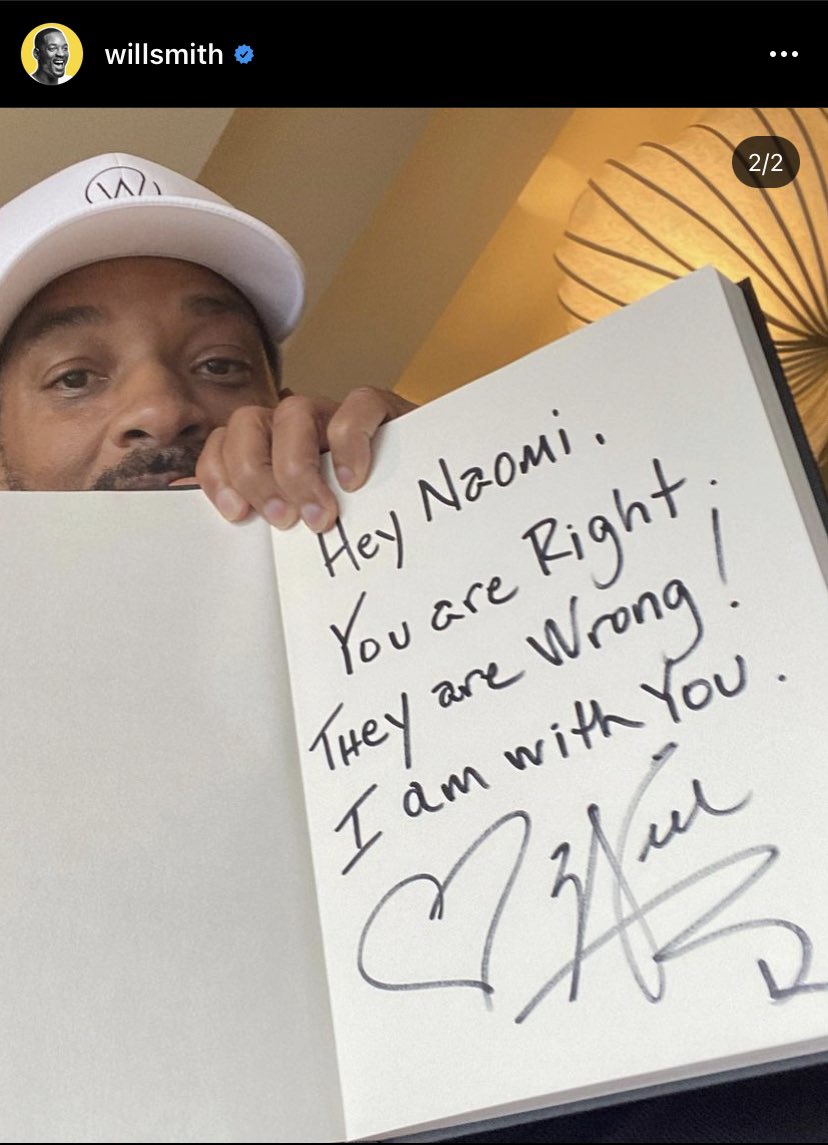 willsmith
2/2
W
Hey Naomi.
You are Right.
They are Wrong!
I am with You.
Will